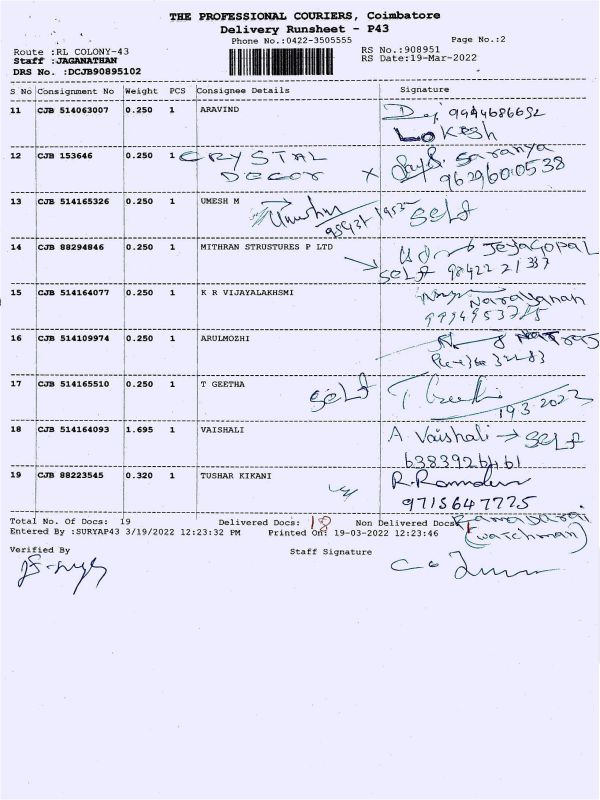 THE PROFESSIONAL COURIERS, Coimbatore
Delivery Runsheet - P43
Phone No.:0422-3505555 Page No.:2
Route :RL COLONY-43 RS No.:908951
Staff :JAGANATHAN RS Date:19-Mar-2022
DRS No. :DCJB90895102
S No Consignment No Weight PCS Consignee Details Signature
11 CJB 514063007 0.250 1 ARAVIND 9944686652
LOKESH
12 CJB 153646 0.250 1 CRYSTAL Saranya
DECOR X 9629600538
13 CJB 514165326 0.250 1 UMESH M SELF
14 CJB 88294846 0.250 1 MITHRAN STRUSTURES P LTD JEYAGOPAL
SELF 98422 21337
15 CJB 514164077 0.250 1 K R VIJAYALAKHSMI Narayanan
9994953725
16 CJB 514109974 0.250 1 ARULMOZHI
17 CJB 514165510 0.250 1 T GEETHA SELF T. Geetha
19.3.2022
18 CJB 514164093 1.695 1 VAISHALI A. Vaishali → SELF
6383926461
19 CJB 88223545 0.320 1 TUSHAR KIKANI R. Ramadurai
9715647725
Total No. Of Docs: 19 Delivered Docs: 18 Non Delivered Docs: Ramadurai
Entered By :SURYAP43 3/19/2022 12:23:32 PM Printed On: 19-03-2022 12:23:46 (watchman)
Verified By Staff Signature